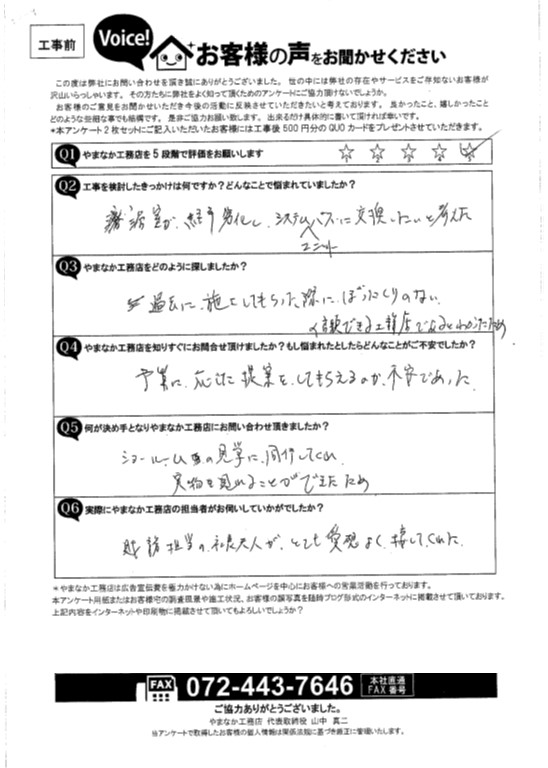 工事前
Voice!
お客様の声をお聞かせください
この度は弊社にお問い合わせを頂き誠にありがとうございました。世の中には弊社の存在やサービスをご存知ないお客様が
沢山いらっしゃいます。その方たちに弊社をよく知って頂くためのアンケートにご協力頂けないでしょうか。
お客様のご意見をお聞かせいただき今後の活動に反映させていただきたいと考えております。良かったこと、嬉しかったこと
どのような些細な事でも結構です。是非ご協力お願い致します。出来るだけ具体的に書いて頂ければ幸いです。
*本アンケート2枚セットにご記入いただいたお客様には工事後500円分のQUOカードをプレゼントさせていただきます。
Q1 やまなか工務店を5段階で評価をお願いします
Q2 工事を検討したきっかけは何ですか?どんなことで悩まれていましたか?
浴室が、経年劣化し、システムバスに交換したいと考えた
ユニット
Q3 やまなか工務店をどのように探しましたか?
過去に、施工してもらった際に、ぼったくりのない
信頼できる工務店であるとわかったため
Q4 やまなか工務店を知りすぐにお問合せ頂けましたか?もし悩まれたとしたらどんなことがご不安でしたか?
予算に、応じた提案を、してもらえるのか、不安であった。
Q5 何が決め手となりやまなか工務店にお問い合わせ頂きましたか?
ショールームの見学に、同行してくれ、
実物を見れることができたため
Q6 実際にやまなか工務店の担当者がお伺いしていかがでしたか?
担当の、社長夫人が、とても愛想よく、接してくれた。
*やまなか工務店は広告宣伝費を省力かけない為にホームページを中心にお客様への営業活動を行っております。
本アンケート用紙またはお客様宅の調査現景や施工状況、お客様の顔写真を随時ブログ形式のインターネットに掲載させて頂いております。
上記内容をインターネットや印刷物に掲載させて頂いてもよろしいでしょうか?
FAX 072-443-7646 本社直通
FAX番号
ご協力ありがとうございました。
やまなか工務店 代表取締役 山中 真二
当アンケートで取得したお客様の個人情報は関係法規に基づき厳正に管理いたします。